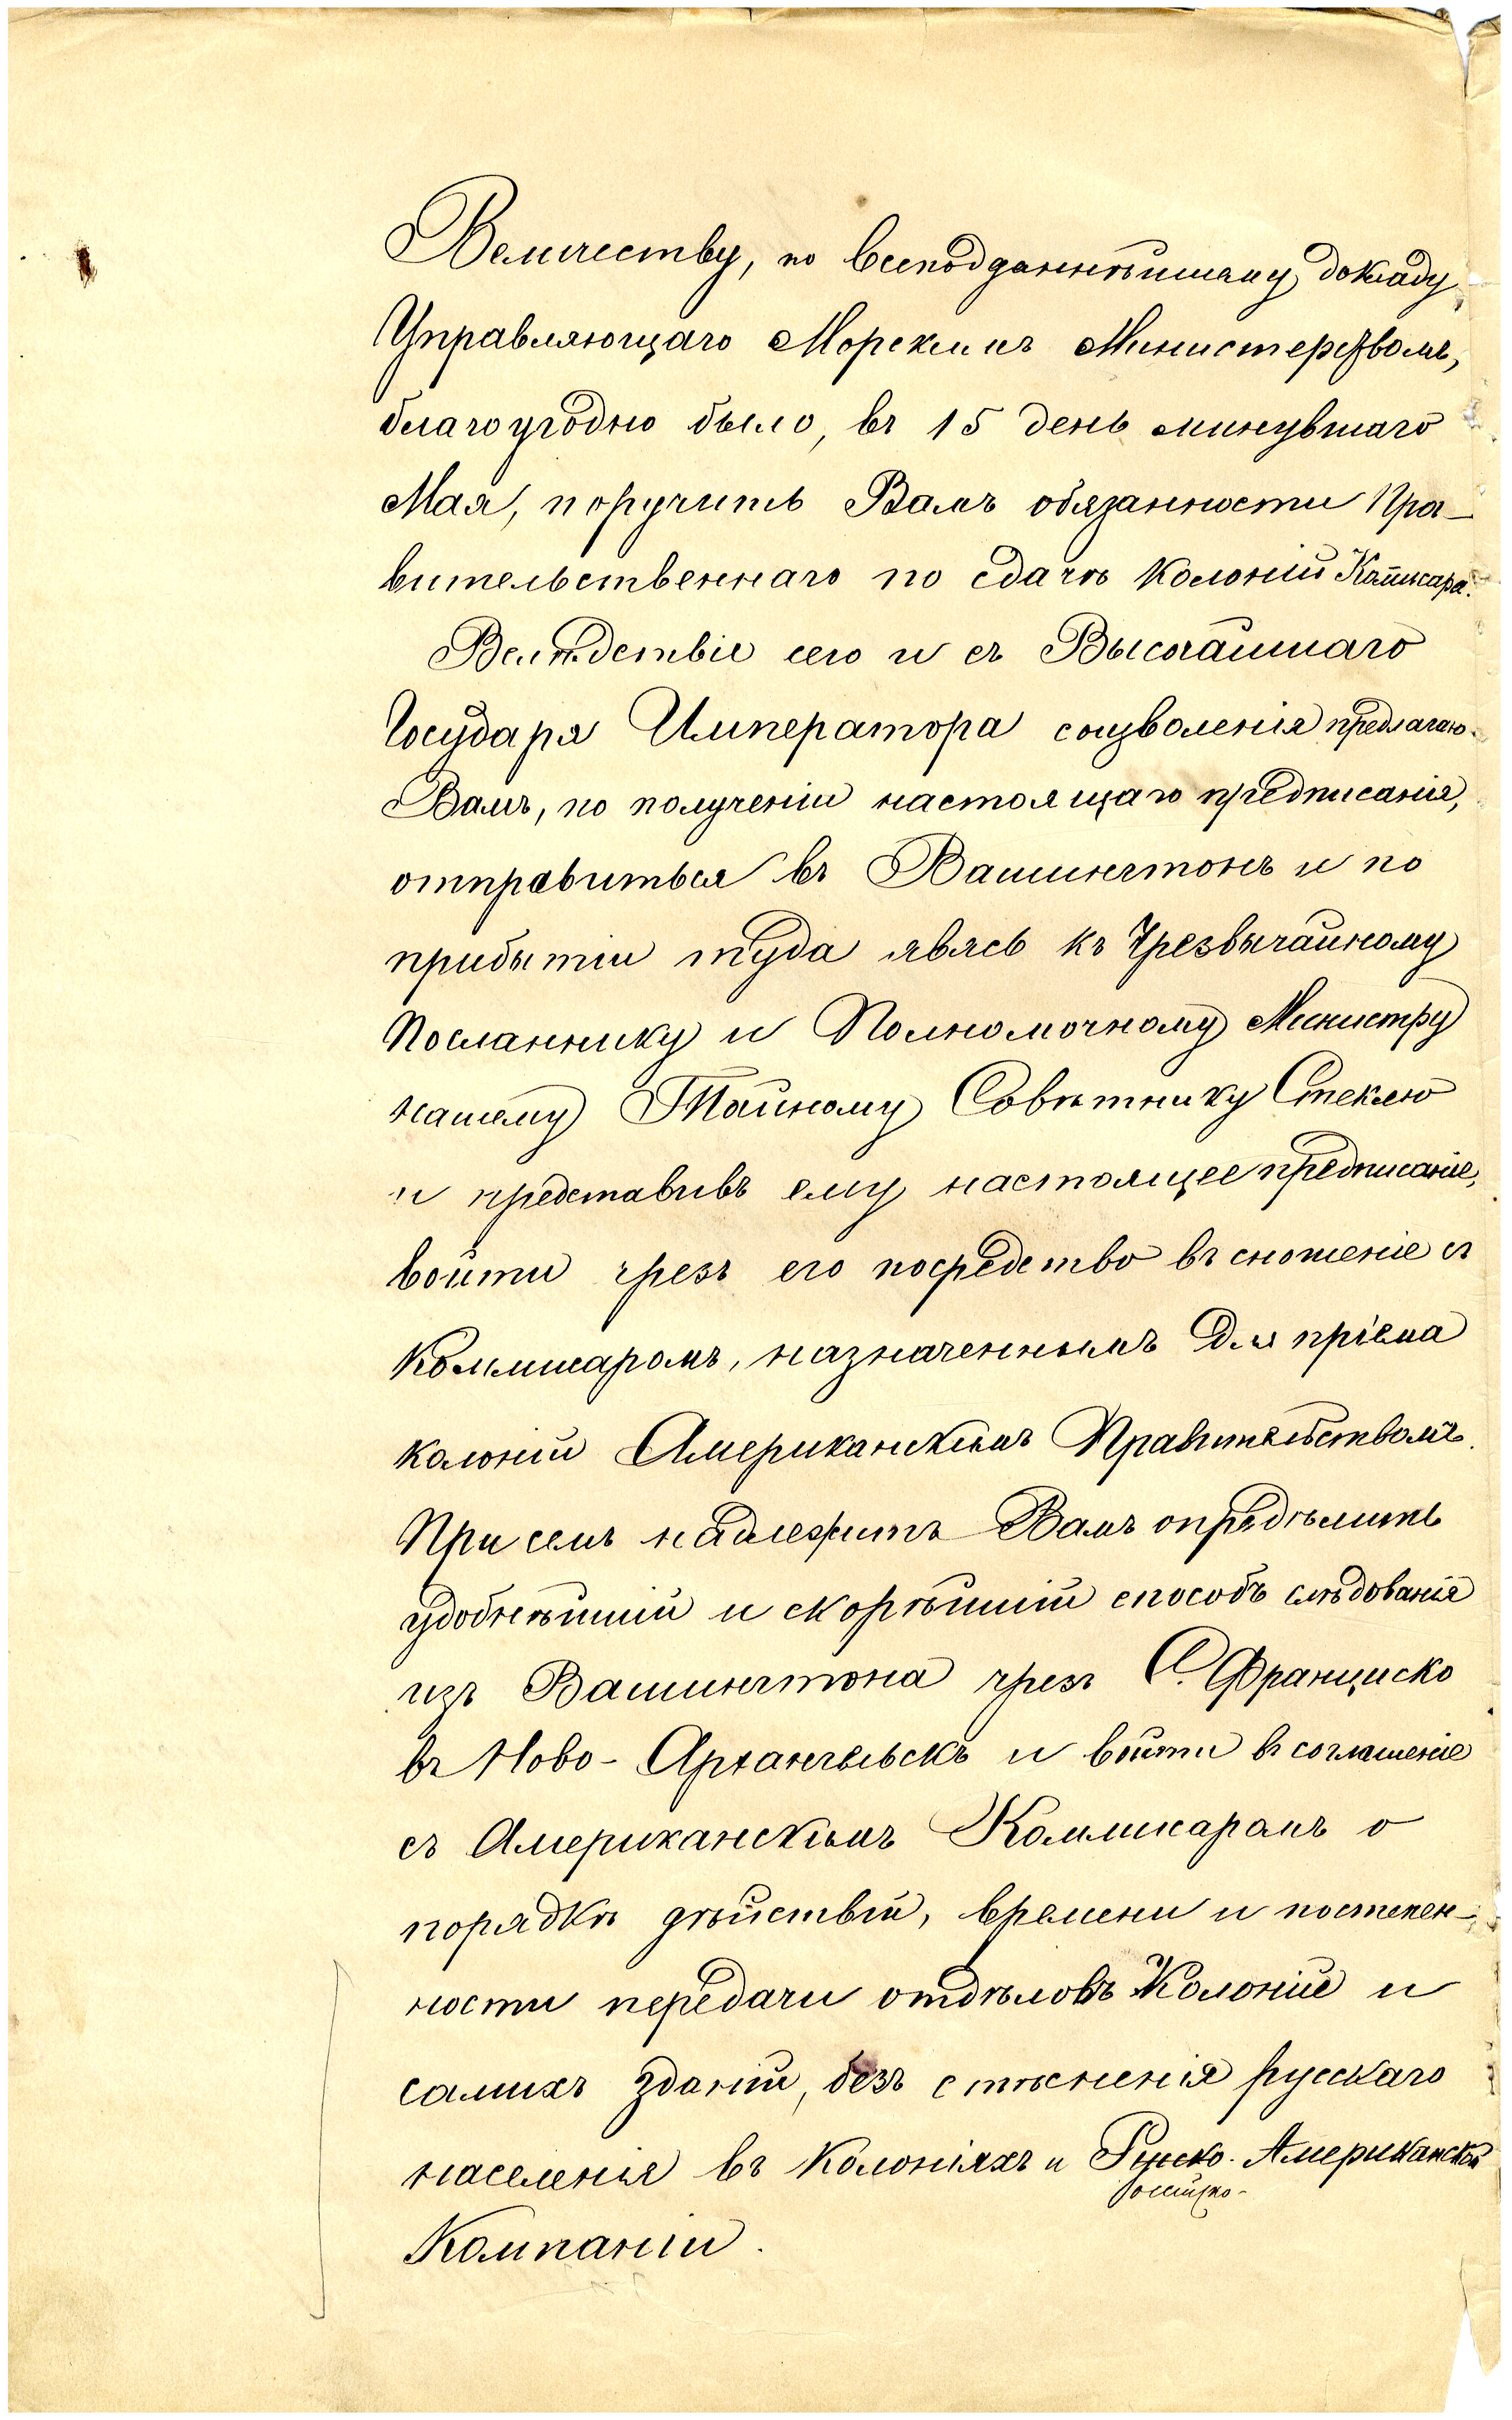 Величеству, по всеподданнѣйшему докладу
Управляющаго Морскимъ Министерствомъ,
благоугодно было, въ 15 день минувшаго
Мая, поручить Вамъ обязанности Пра-
вительственнаго по сдачѣ колоній Коммисара.
Вслѣдствіе сего и съ Высочайшаго
Государя Императора соизволенія предлагаю
Вамъ, по полученіи настоящаго предписанія,
отправиться въ Вашингтонъ и по
прибытіи туда явясь къ Чрезвычайному
Посланнику и Полномочному Министру
нашему Тайному Совѣтнику Стеклю
и представивъ ему настоящее предписаніе,
войти чрезъ его посредство въ сношеніе съ
Коммисаромъ, назначеннымъ для пріема
колоній Американскимъ Правительствомъ.
При семъ надлежитъ Вамъ опредѣлить
удобнѣйшій и скорѣйшій способъ слѣдованія
изъ Вашингтона чрезъ С. Франциско
въ Ново-Архангельскъ и войти въ соглашеніе
съ Американскимъ Коммисаромъ о
порядкѣ дѣйствій, времени и постепен-
ности передачи отдѣловъ Колоніи и
самихъ зданій, безъ стѣсненія русскаго
населенія въ Колоніяхъ и Русско-Американской
Россійско-
Компаніи.